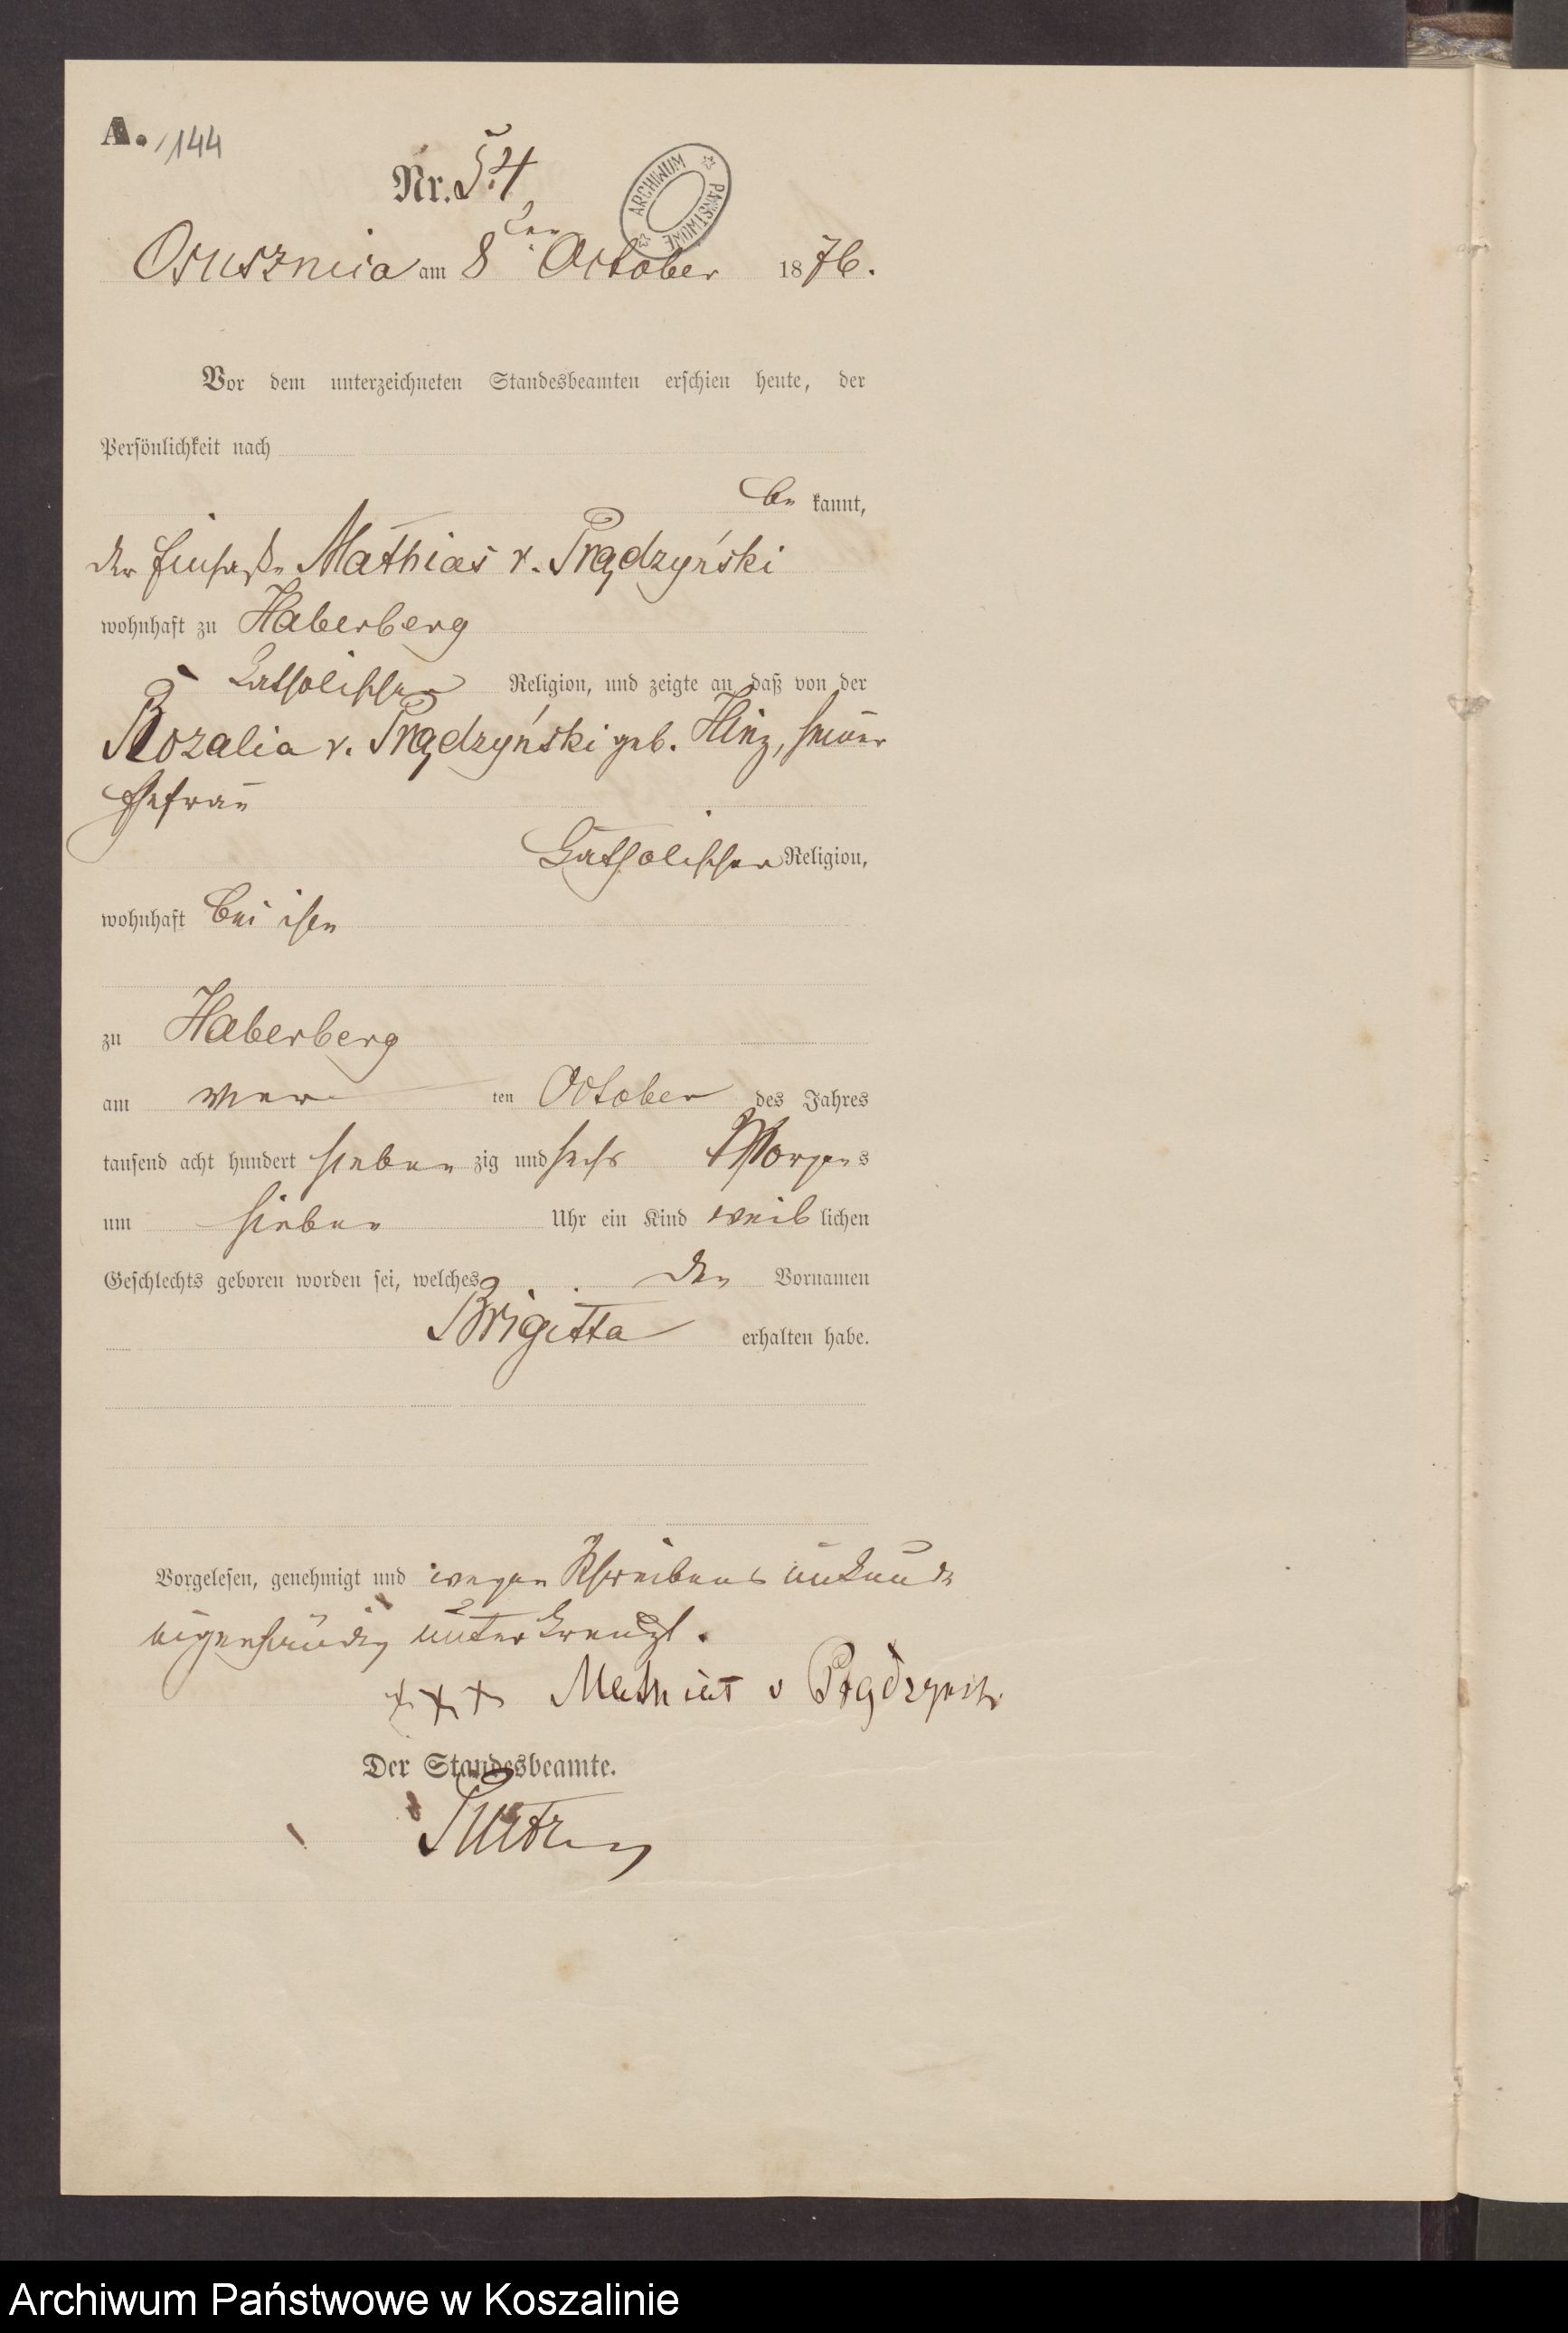 A. 144
Nr. 54
ARCHIWUM PAŃSTWOWE
Osusznica am 8ten October 1876.
Vor dem unterzeichneten Standesbeamten erschien heute, der
Persönlichkeit nach
be kannt,
der Einsaße Mathias v. Prądzyński
wohnhaft zu Haberberg
katholischer Religion, und zeigte an, daß von der
Rozalia v. Prądzyński geb. Hinz, seiner
Ehefrau
katholischer Religion,
wohnhaft bei ihm
zu Haberberg
am vier ten October des Jahres
tausend acht hundert sieben zig und sechs Morgens
um sieben Uhr ein Kind weib lichen
Geschlechts geboren worden sei, welches den Vornamen
Brigitta erhalten habe.
Vorgelesen, genehmigt und wegen Schreibens unkunde
eigenhändig unterkreuzt.
+++ Mathias v
Der Standesbeamte.
Archiwum Państwowe w Koszalinie